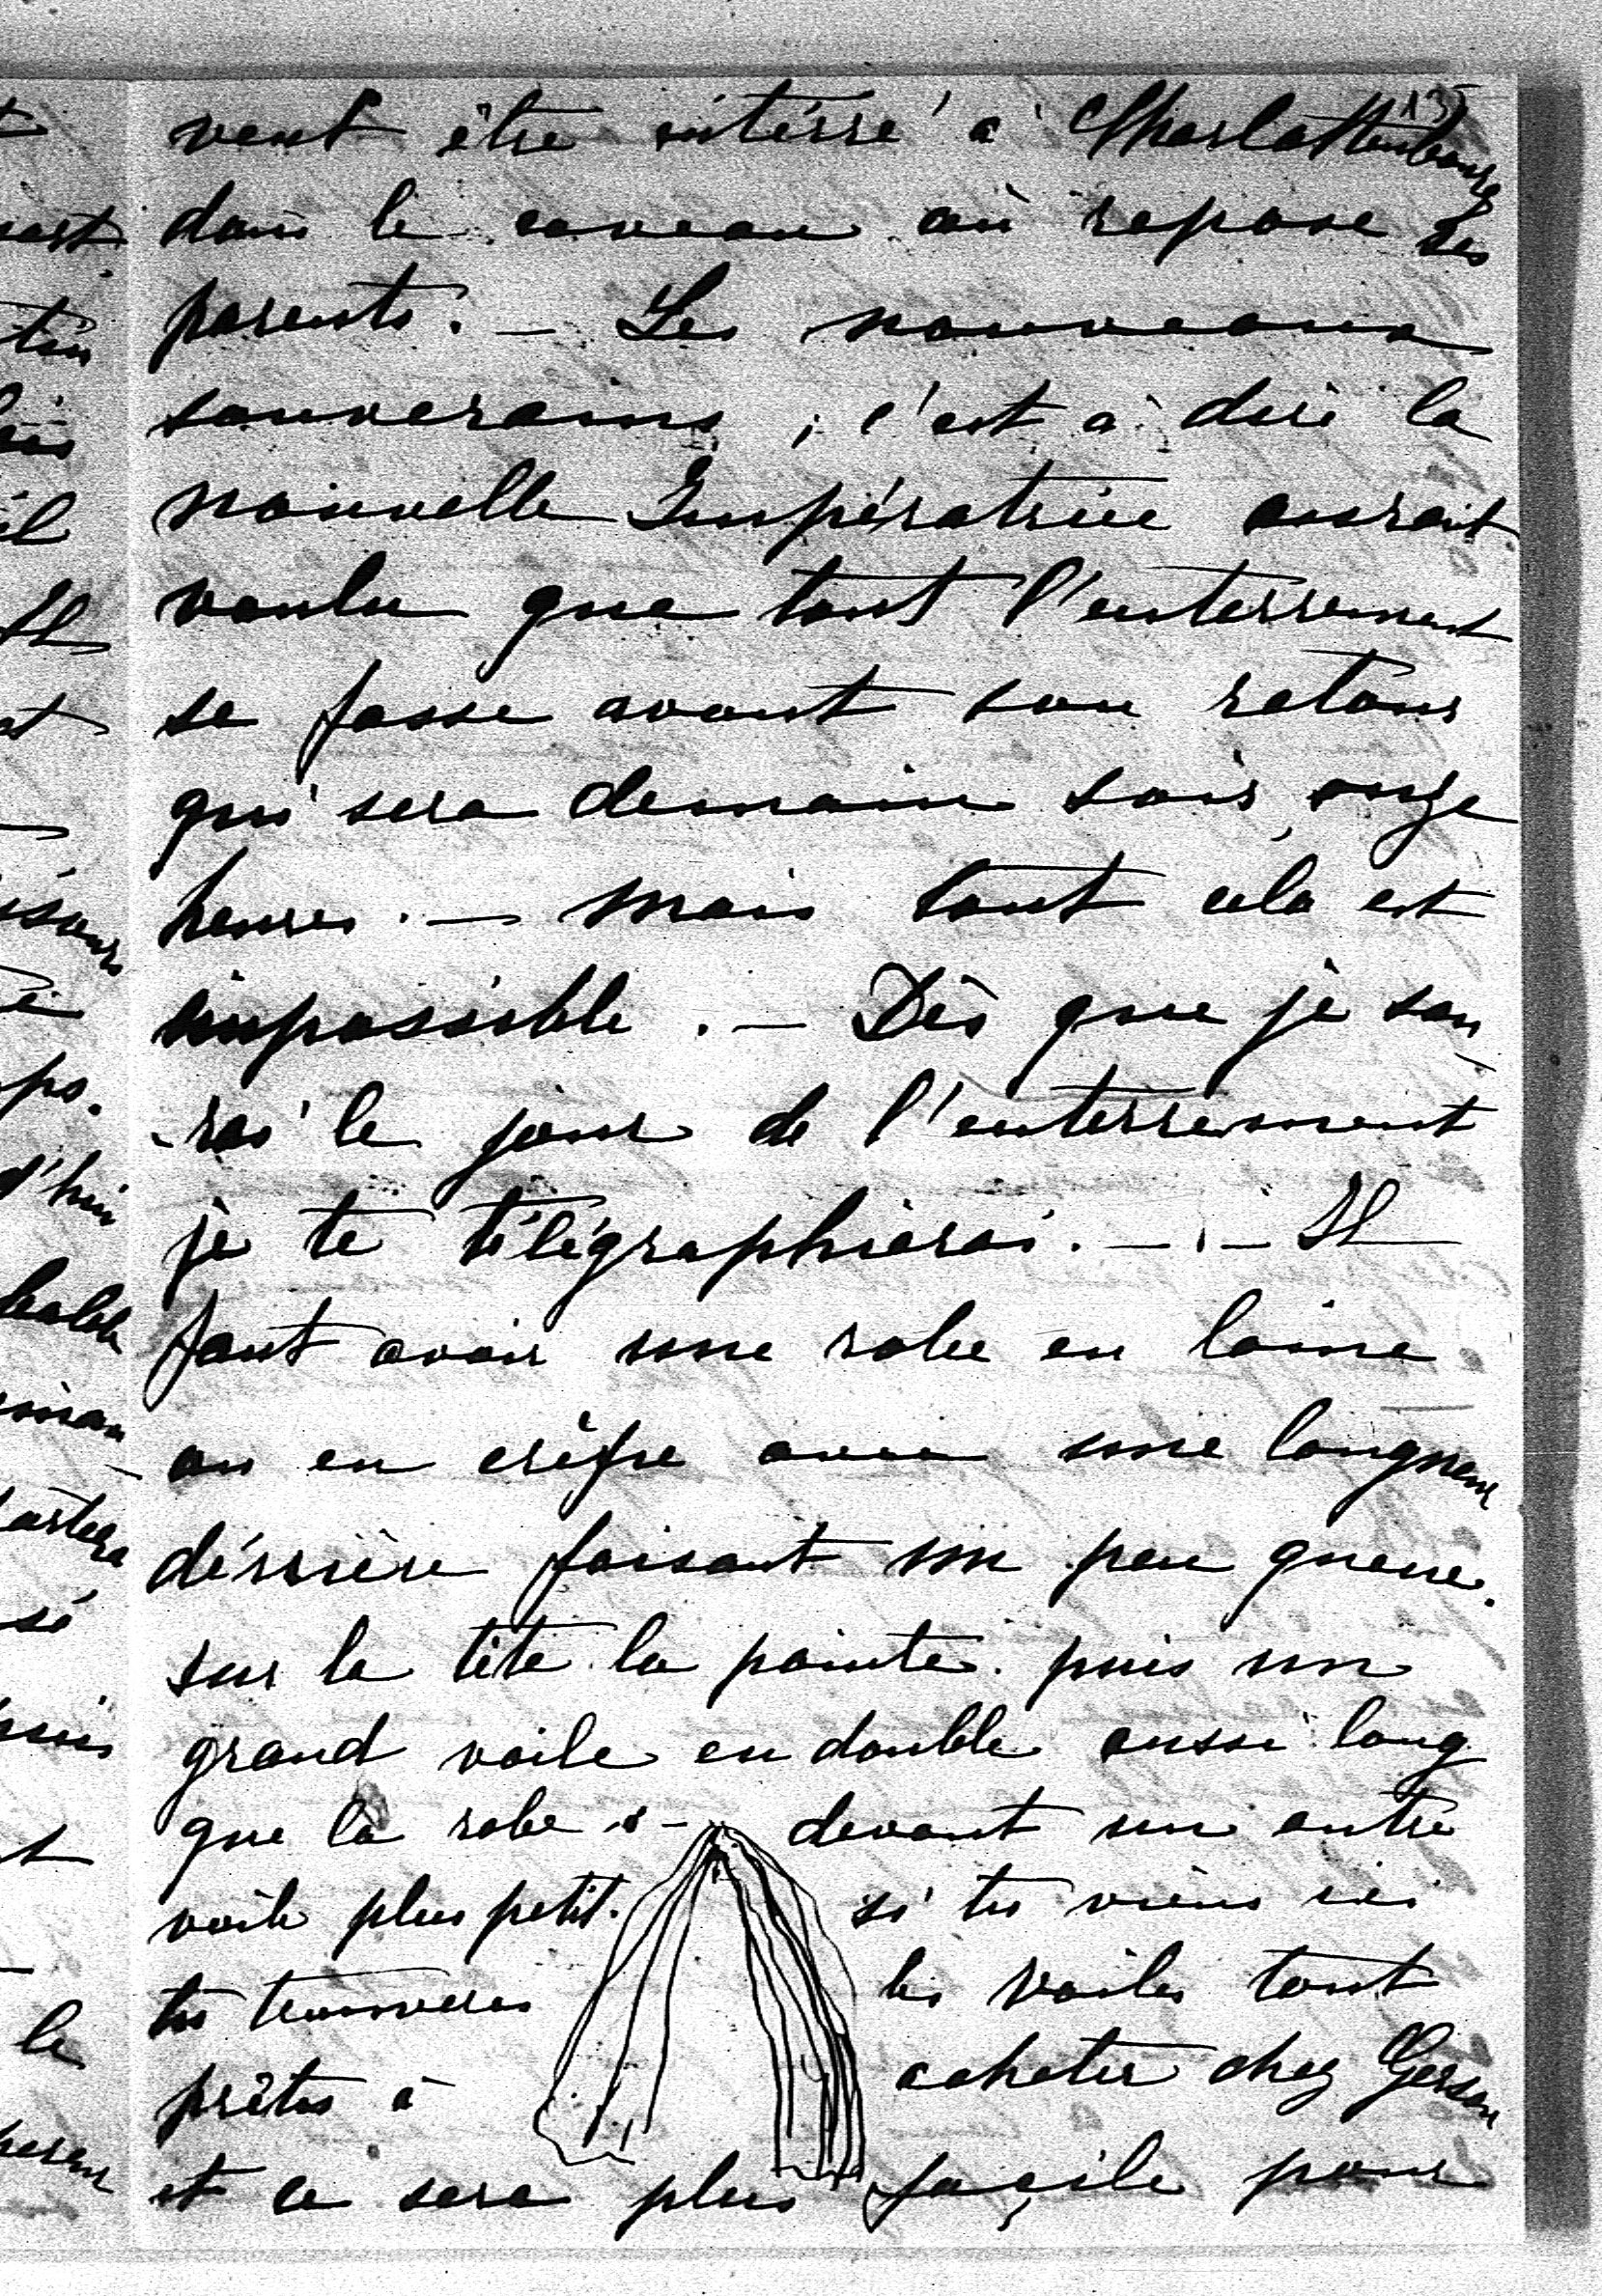 135
veut être intérré à Charlottenbourg
dans le caveau où repose ses
parents. — Les nouveaux
souverains, c'est à dire la
nouvelle Impératrice aurait
voulu que tout l'enterrement
se fasse avant son retour
qui sera demain soir, onze
heures. — Mais tout cela est
impossible. — Dès que je sau
-rai le jour de l'enterrement
je te télégraphierai. — . — Il
faut avoir une robe en laine
ou en crêpe avec une longueur
dérrière faisant un peu queue.
sur la tête la pointe. puis un
grand voile en double aussi long
que la robe - devant un autre
voile plus petit. si tu viens ici
tu trouveras les voiles tout
prêtes à acheter chez Gerson
et ce sera plus façile pour